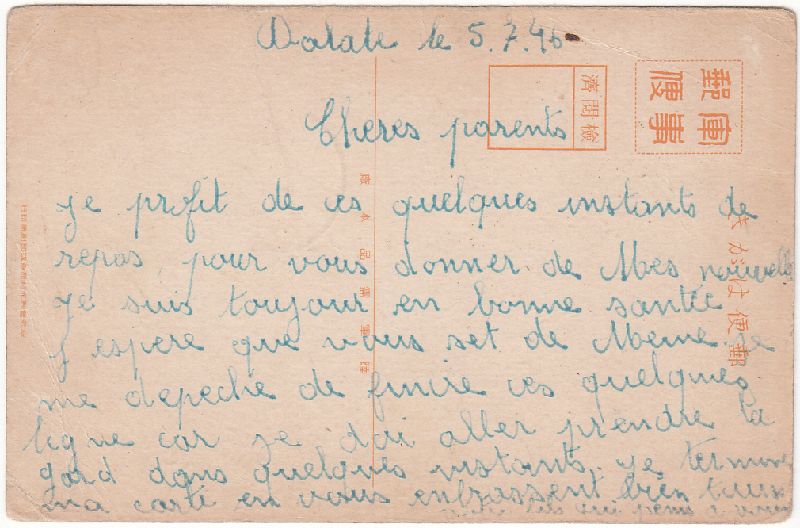 Dalate le 5.7.46
軍事
郵便
検閲済
Cheres parents
je profit de ces quelques instants de
repos, pour vous donner de Mes nouvelle
je suis toujour en bonne santée
j espere que vous set de Meme. je
me depeche de finire ces quelques
ligne car je doi aller prendre la
gard dans quelques instants. je termine
ma carte en vous enbrassent bien tous
郵便はがき